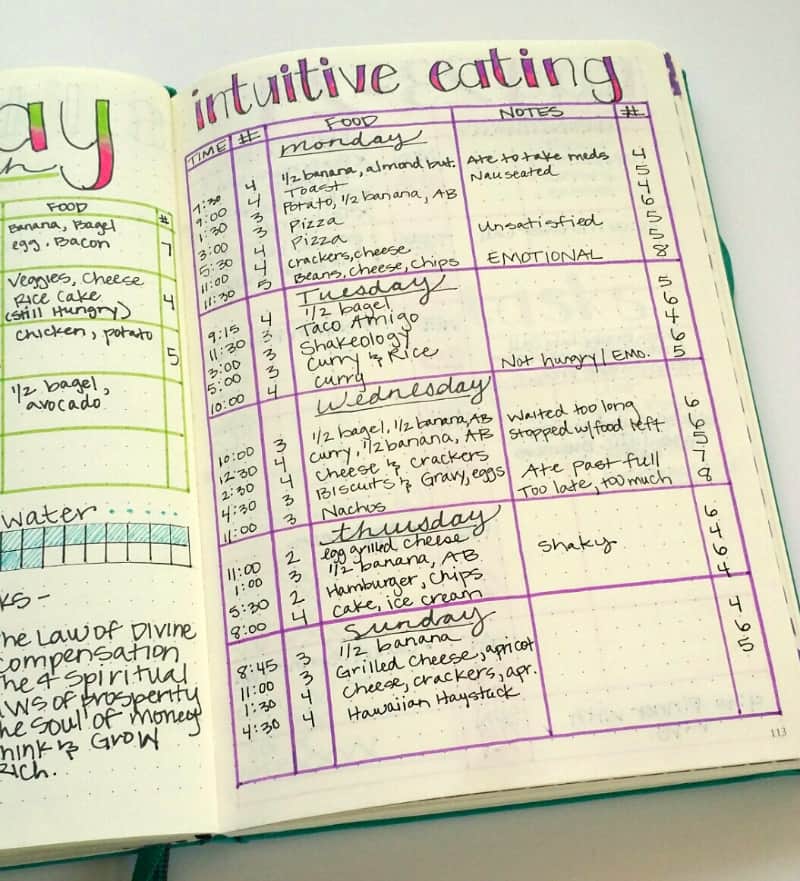 ay
h
FOOD #
Banana, Bagel
egg. Bacon 7
Veggies, Cheese
Rice Cake 4
(Still Hungry)
Chicken, potato
5
1/2 bagel,
avocado
water
KS -
he Law of Divine
ompensation
he 4 Spiritual
aws of Prosperity
he Soul of Money
hink & Grow
Rich.
intuitive eating
TIME # FOOD NOTES #
Monday
7:30 4 1/2 banana, almond but. Ate to take meds 4
9:00 4 Toast Nauseated 5
1:30 3 Potato, 1/2 banana, AB 4
3:00 3 Pizza 6
5:30 4 Pizza Unsatisfied 5
11:00 4 Crackers, cheese 5
11:30 5 Beans, cheese, chips EMOTIONAL 8
Tuesday
9:15 4 1/2 bagel 5
11:30 3 Taco Amigo 6
3:00 3 Shakeology 4
5:00 3 Curry & Rice 6
10:00 4 Curry Not hungry/EMO. 5
Wednesday
10:00 3 1/2 bagel, 1/2 banana, AB Waited too long 6
12:30 4 Curry, 1/2 banana, AB Stopped w/food left 6
2:30 4 Cheese & crackers 5
4:30 3 Biscuits & Gravy, eggs Ate past full 7
11:00 3 Nachos Too late, too much 8
Thursday
11:00 2 egg grilled cheese 6
1:00 3 1/2 banana, AB Shaky 4
5:30 2 Hamburger, Chips 6
8:00 4 Cake, ice cream 4
Sunday
8:45 3 1/2 banana 4
11:00 3 Grilled cheese, apricot 6
1:30 4 Cheese, crackers, apr. 5
4:30 4 Hawaiian Haystack
113